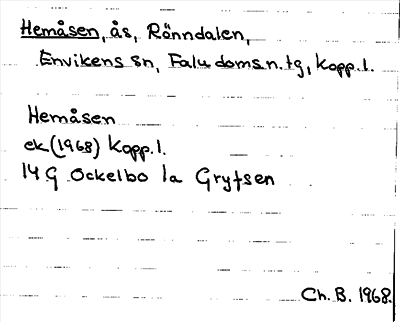 Hemåsen, ås, Rönndalen,
Envikens sn, Falu doms.n.tg, Kopp.l.
Hemåsen
ek (1968) Kopp.l.
14 G Ockelbo 1a Gryfsen
Ch. B. 1968.